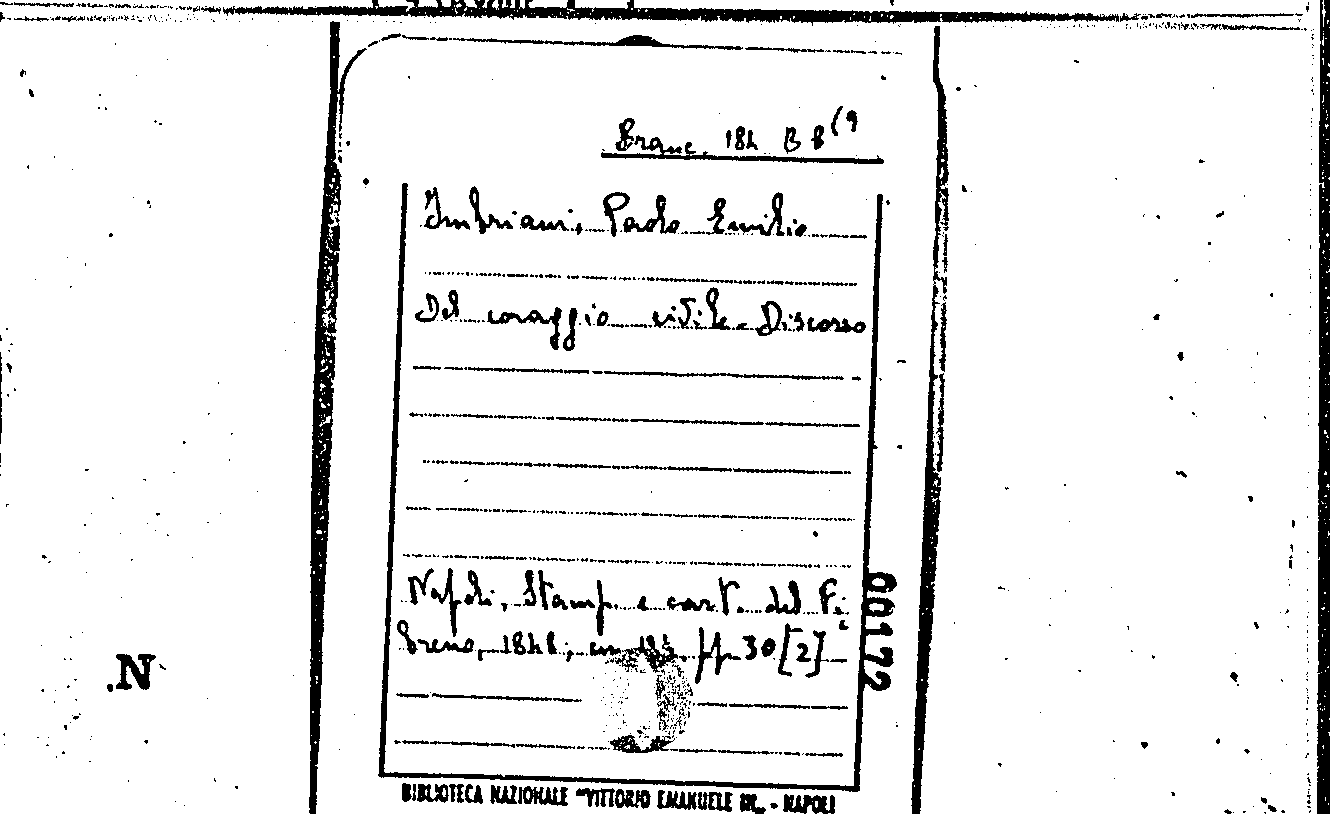 Branc. 184 B 8 (9
Imbriani, Paolo Emilio
Del coraggio civile. Discorso
Napoli, Stamp. e cart. del Fi
breno, 1848; in pp. 30 [2]
00172
N.
BIBLIOTECA NAZIONALE "VITTORIO EMANUELE III„ - NAPOLI